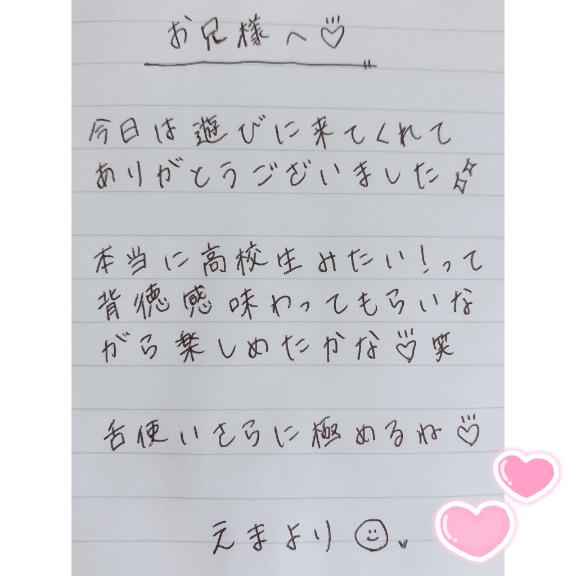 お兄様へ♡
今日は遊びに来てくれて
ありがとうございました
本当に高校生みたい!って
背徳感味わってもらいな
がら楽しめたかな♡笑
舌使いさらに極めるね♡
えまより